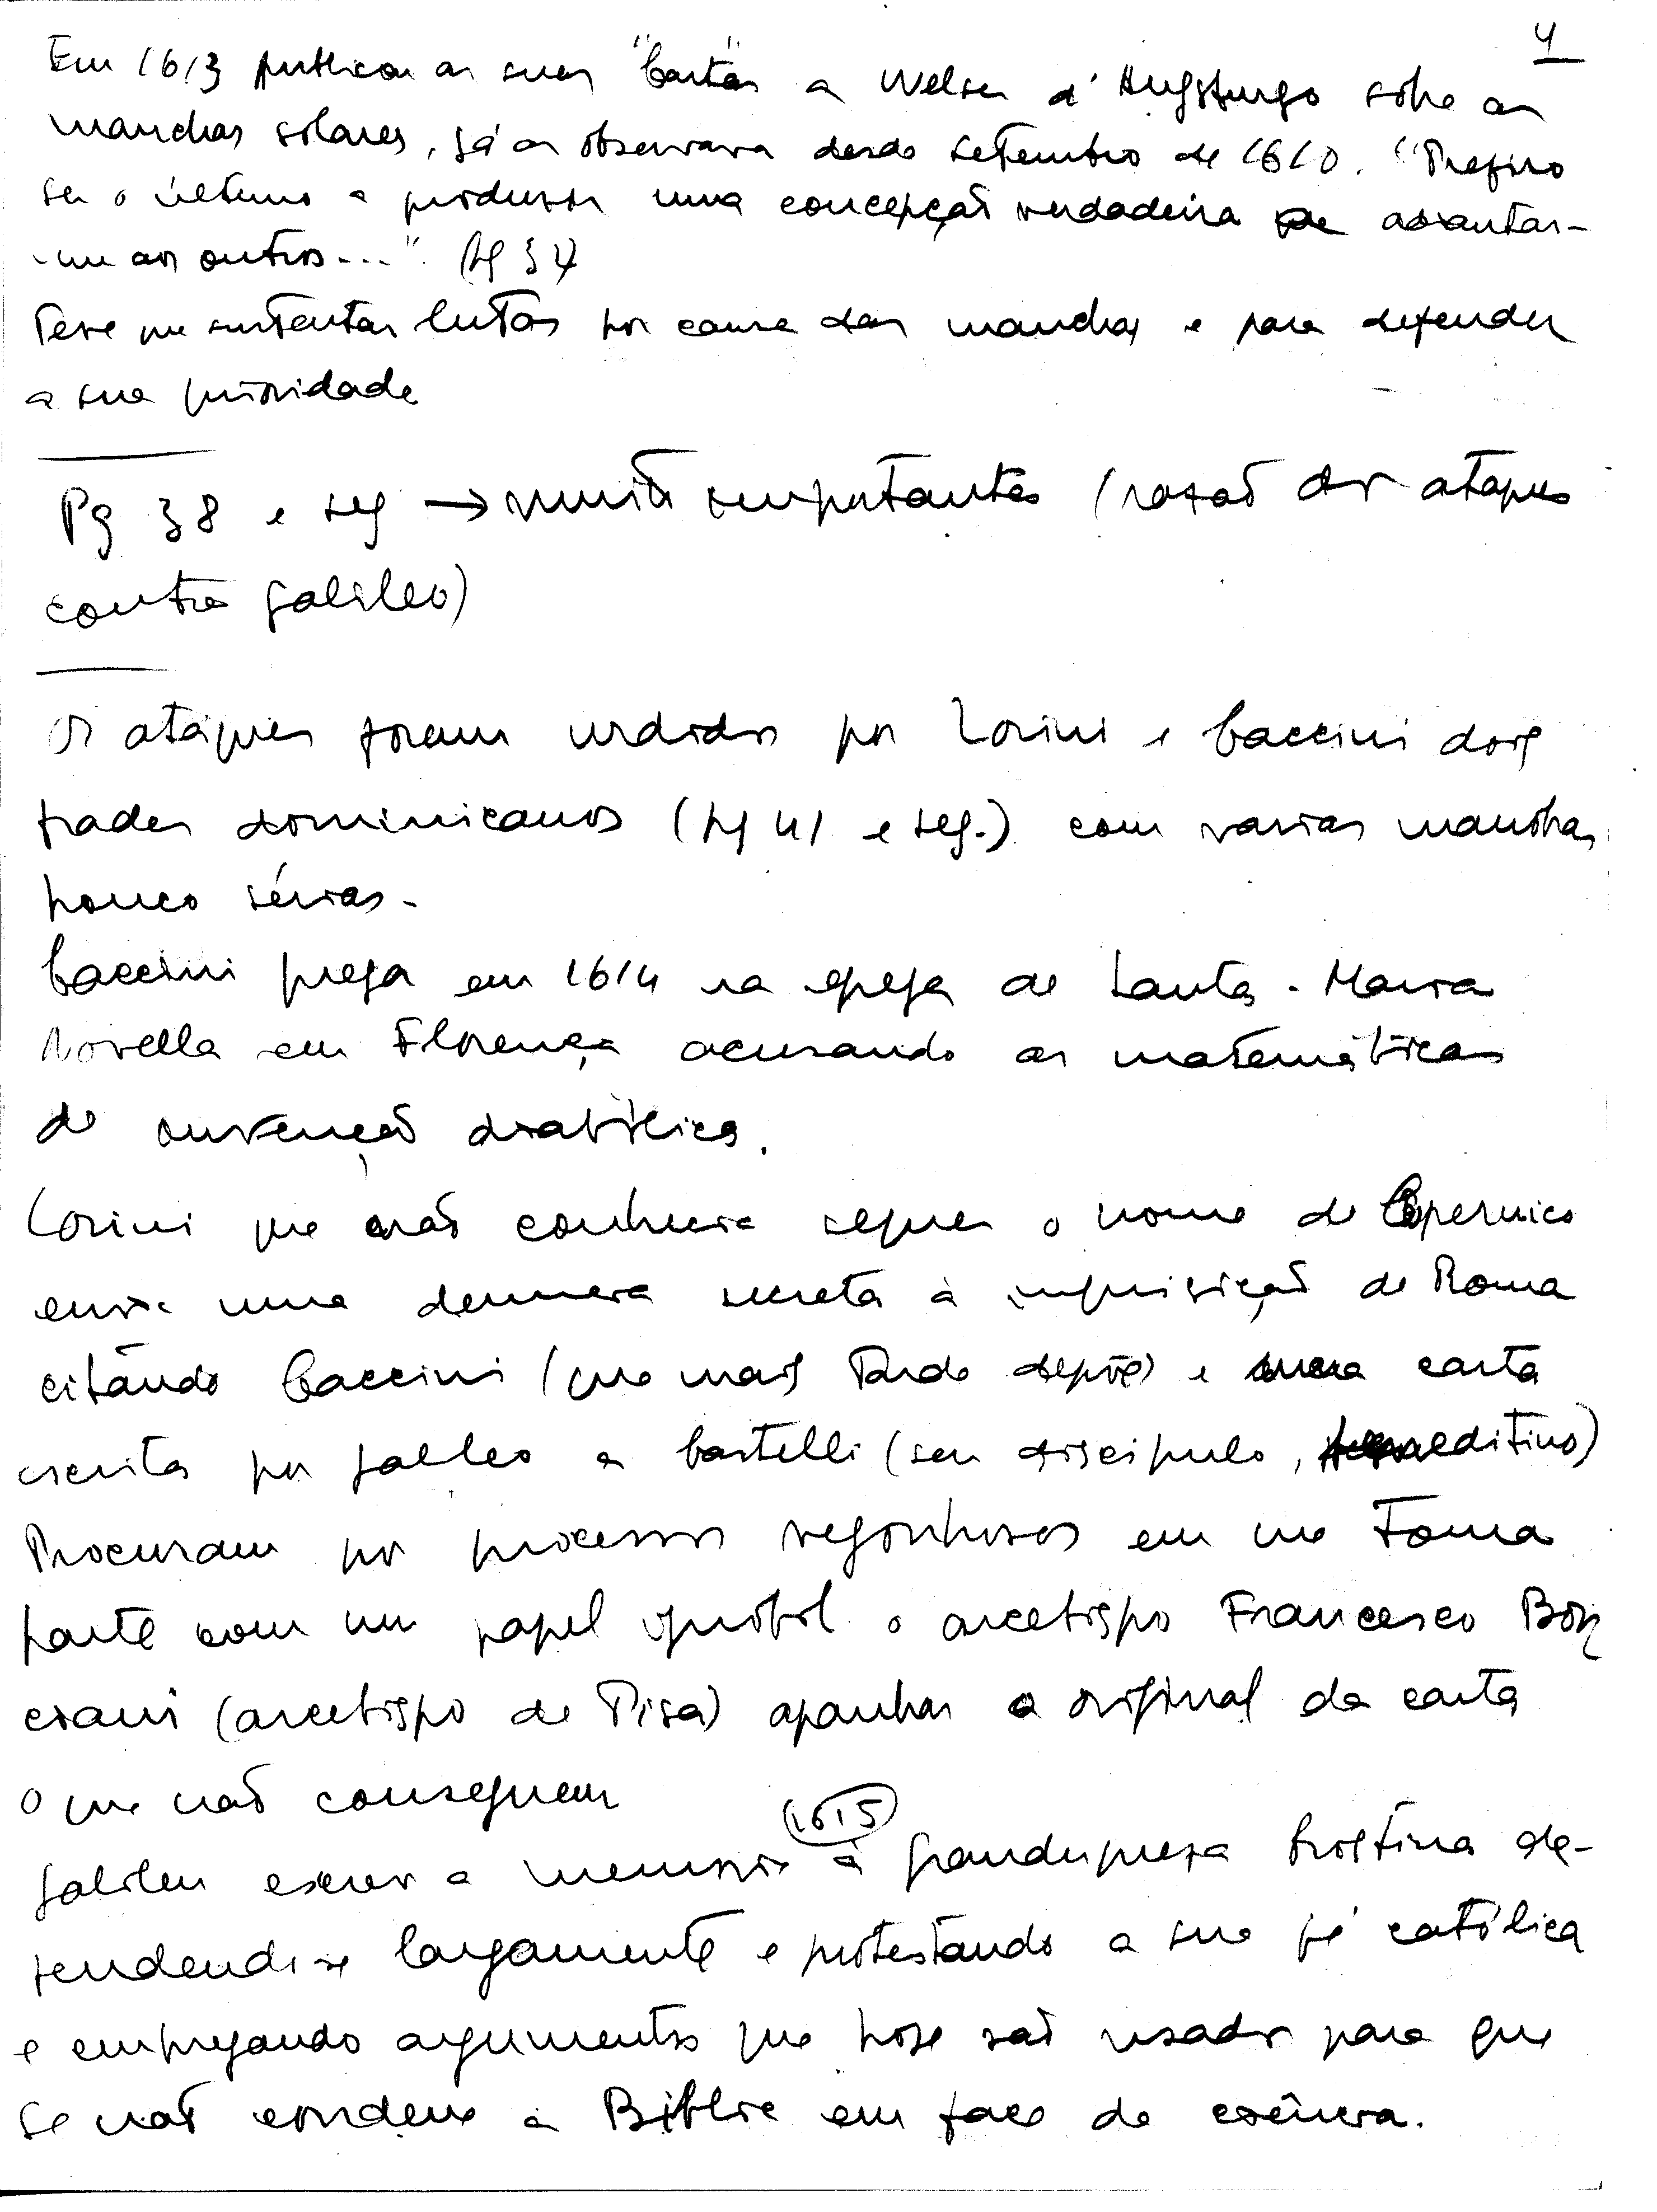 4
Em 1613 publicou as suas "Cartas" a Welser d'Augsburgo sobre as
manchas solares, já as observava desde setembro de 1610. "Prefiro
ser o último a produzir uma concepção verdadeira a adiantar-
-me aos outros..." (pg 34)
Teve que sustentar lutas por causa das manchas e para defender
a sua prioridade
Pg 38 e seg → muito importantes (razão dos ataques
contra Galileo)
Os ataques foram urdidos por Lorini e Caccini dois
frades dominicanos (pg 41 e seg.) com varias manobras
pouco sérias.
Caccini prega em 1614 na egreja de Santa-Maria
Novella em Florença acusando as matemáticas
de invenção diabólica.
Lorini que não conhecia sequer o nome de Copernico
envia uma denuncia secreta à inquisição de Roma
citando Caccini (que mais tarde depõe) e uma carta
escrita por Galileo a Castelli (seu discipulo, beneditino)
Procuram por processos vergonhosos em que toma
parte com um papel ignobil o arcebispo Francesco Bon
ciani (arcebispo de Pisa) apanhar o original da carta
o que não conseguem
Galileu escreve a memoria (1615) à granduqueza Cristina de-
fendendo-se largamente e protestando a sua fé católica
e empregando argumentos que hoje são usados para que
se não condene a Biblia em face da ciência.